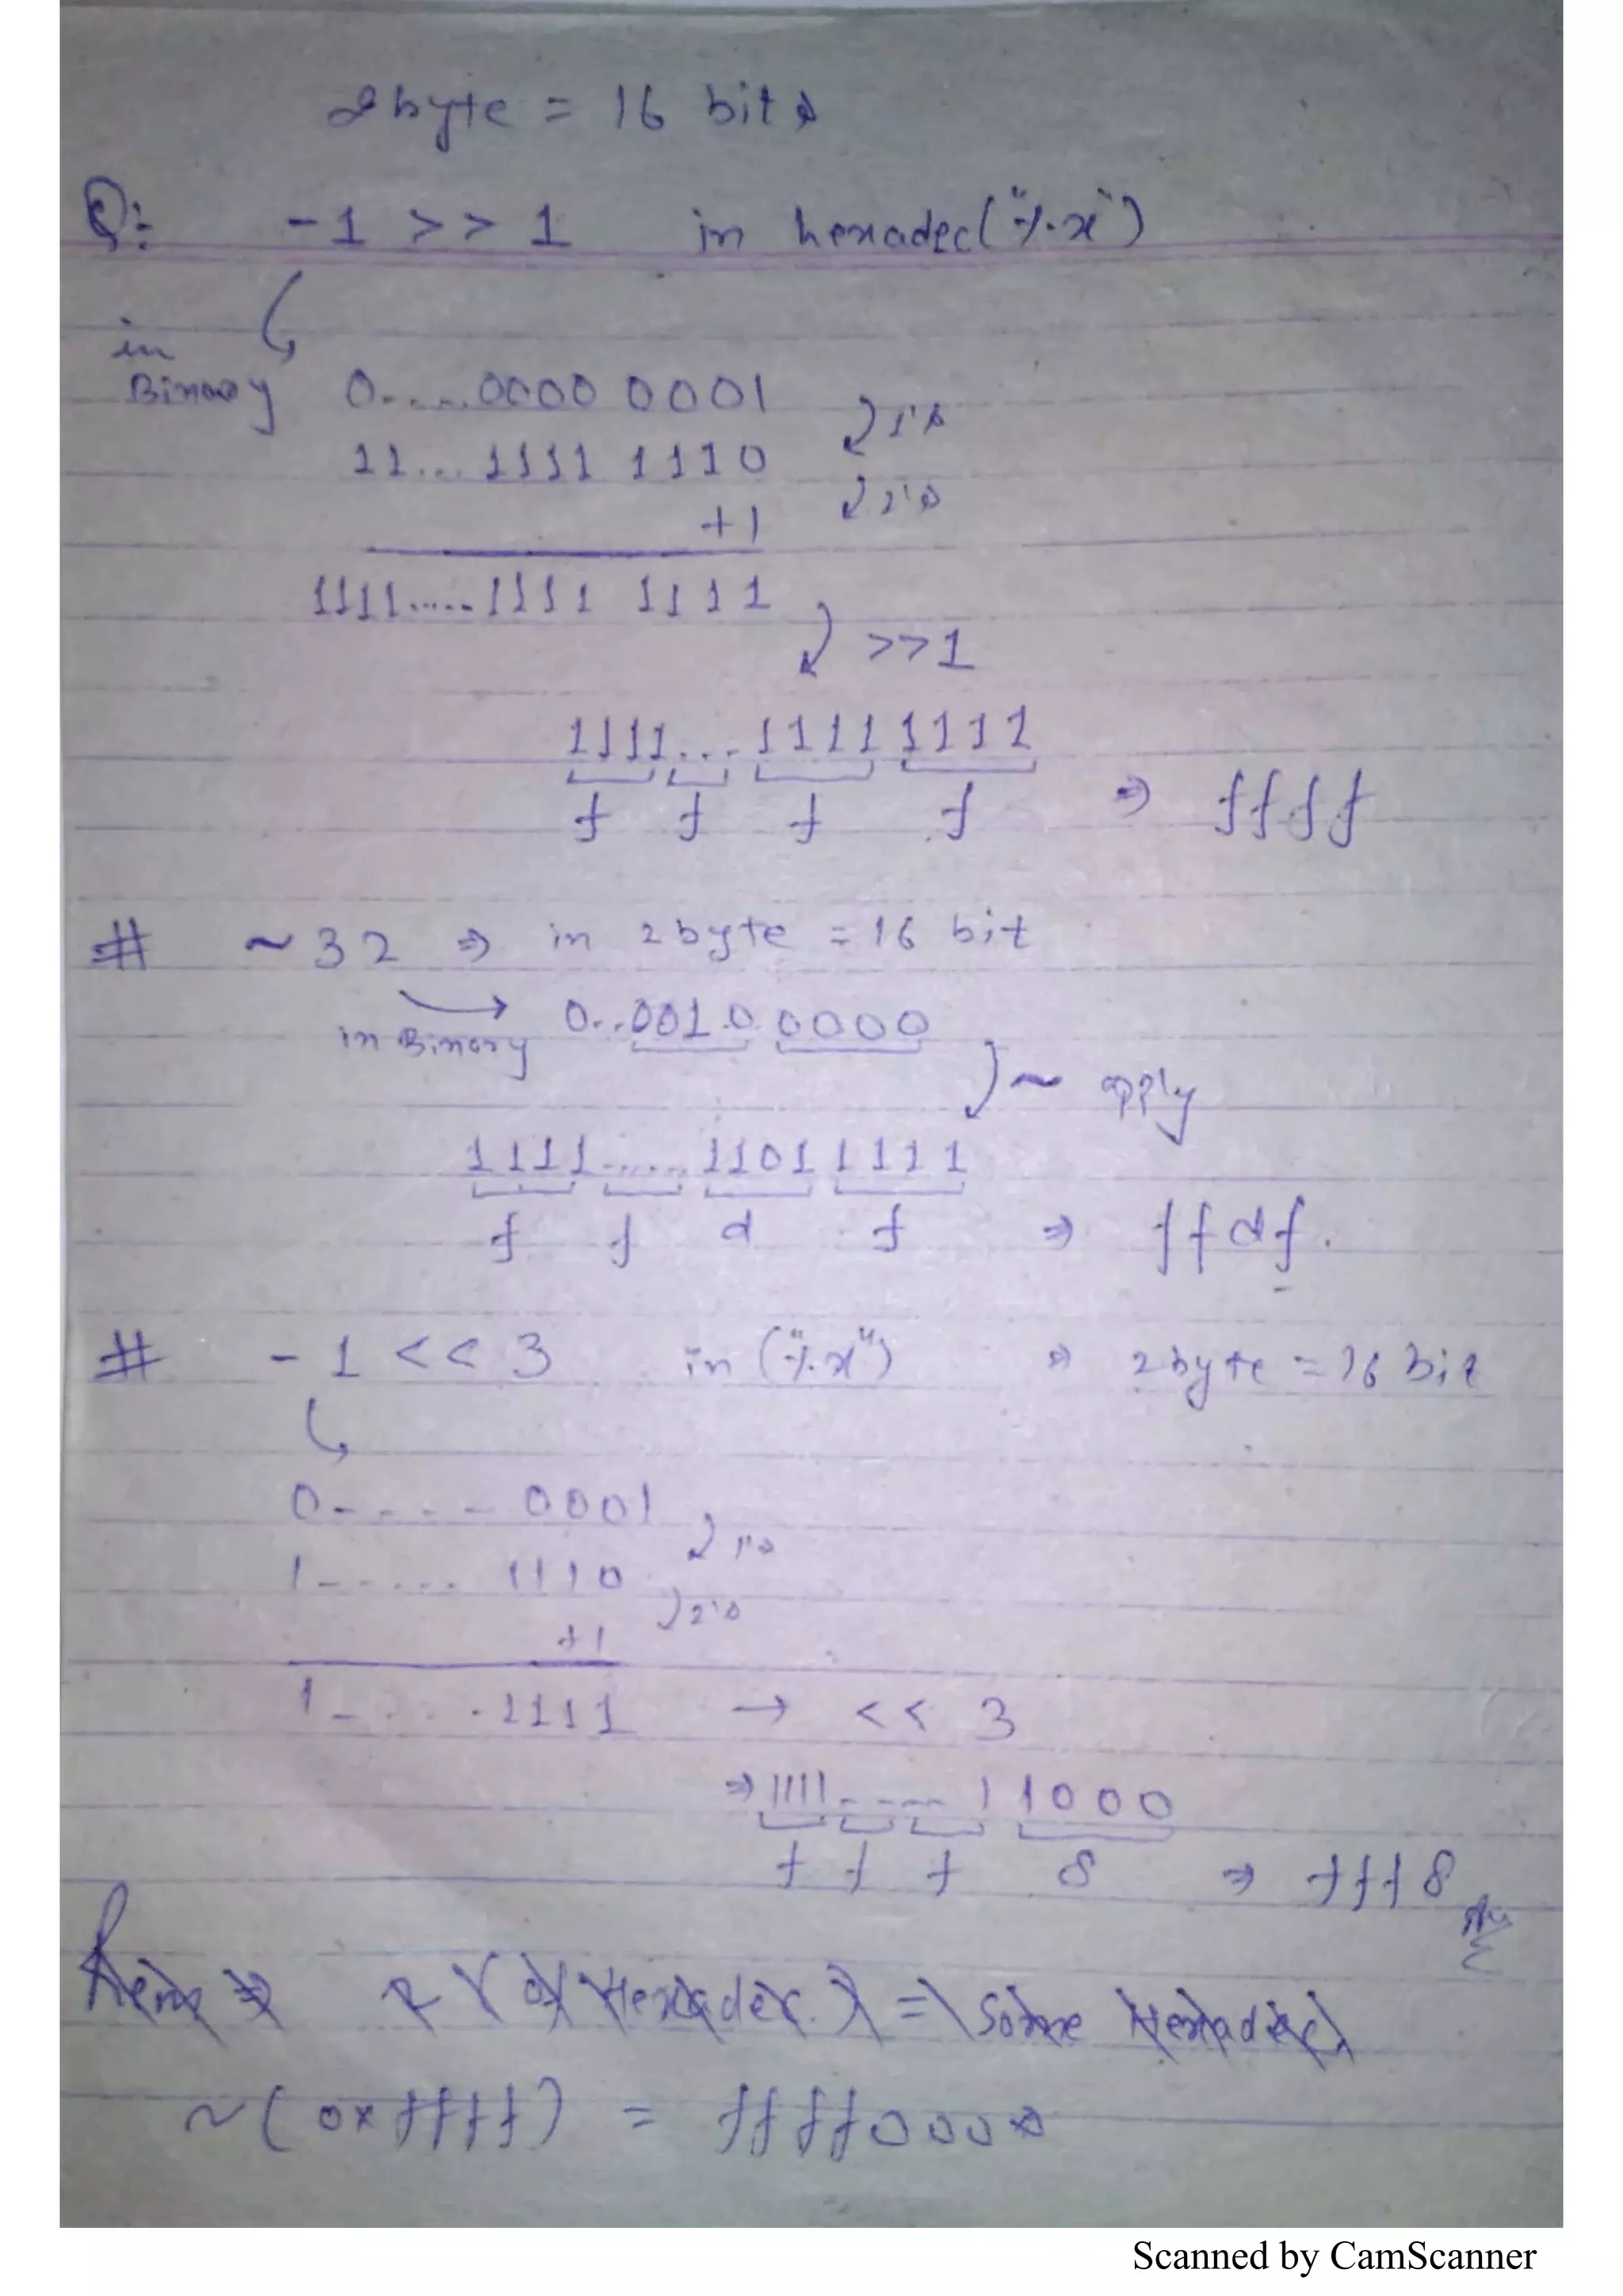 2byte = 16 bits
Q: -1 >> 1 in hexadec("%x")
in
Binary 0.....0000 0001
1's
11... 1111 1110
2's
+1
1111.....1111 1111
>>1
1111...1111 1111
f f f f ⇒ ffff
# ~32 ⇒ in 2byte = 16 bit
in Binary 0..0010 0000
~ apply
1111.....1101 1111
f f d f ⇒ ffdf.
# -1 << 3 in ("%x") ⇒ 2byte = 16 bit
0----- 0001
1's
1------ 1110
2's
+1
1-....1111 → << 3
⇒ 1111.....1 1000
f f f 8 ⇒ fff8
Ans
~(0xffff) = ffff0000
Scanned by CamScanner